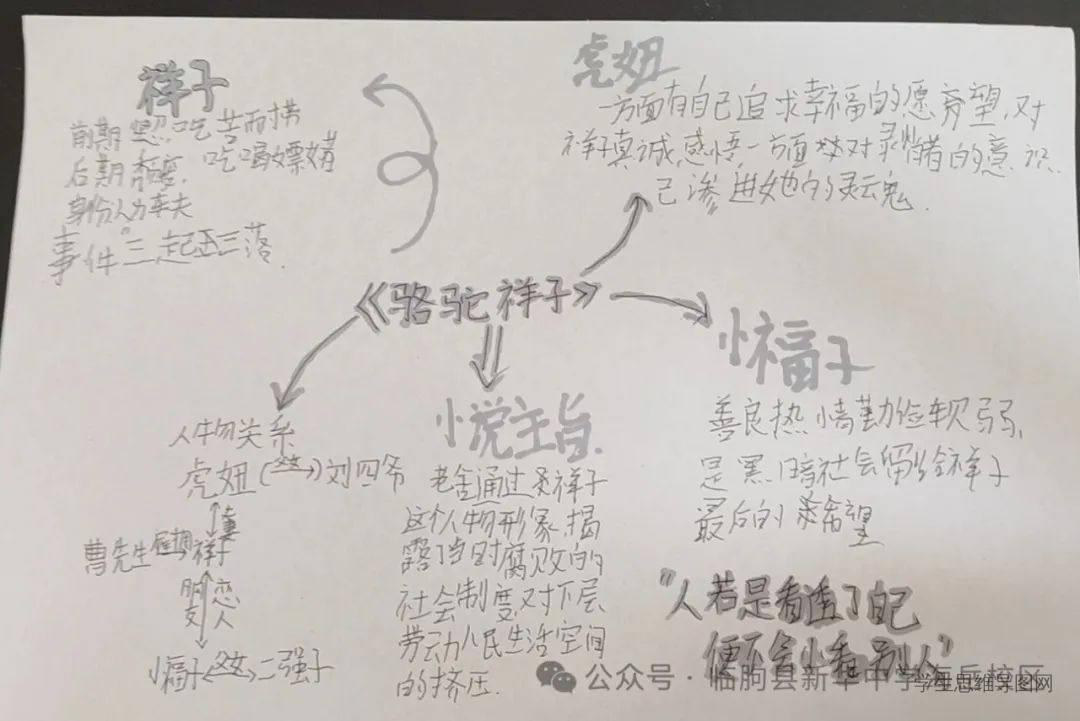 祥子
前期 吃苦而耐劳
后期 吃喝嫖赌
身份人力车夫
事件“三起三落
虎妞
一方面有自己追求幸福的愿望,对
祥子真诚,感悟,一方面 对剥削者的意识
已渗进她的灵魂.
《骆驼祥子》
小福子
善良热情勤俭软弱,
是黑暗社会留给祥子
最后的希望
人物关系
虎妞(父女)刘四爷
夫妻
曹先生雇拥祥子
朋友 恋人
小福子父女二强子
小说主旨.
老舍通过祥子
这个人物形象,揭
露了当时腐败的
社会制度对下层
劳动人民生活空间
的挤压.
“人若是看透了自己
便不会小看别人”
公众号·临朐县新华中学海岳校区
学生思维导图网